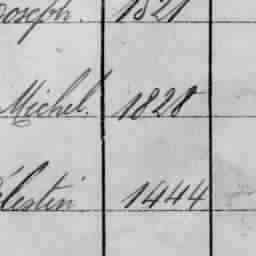 Joseph. 1821
Michel. 1828
Célestin 1444